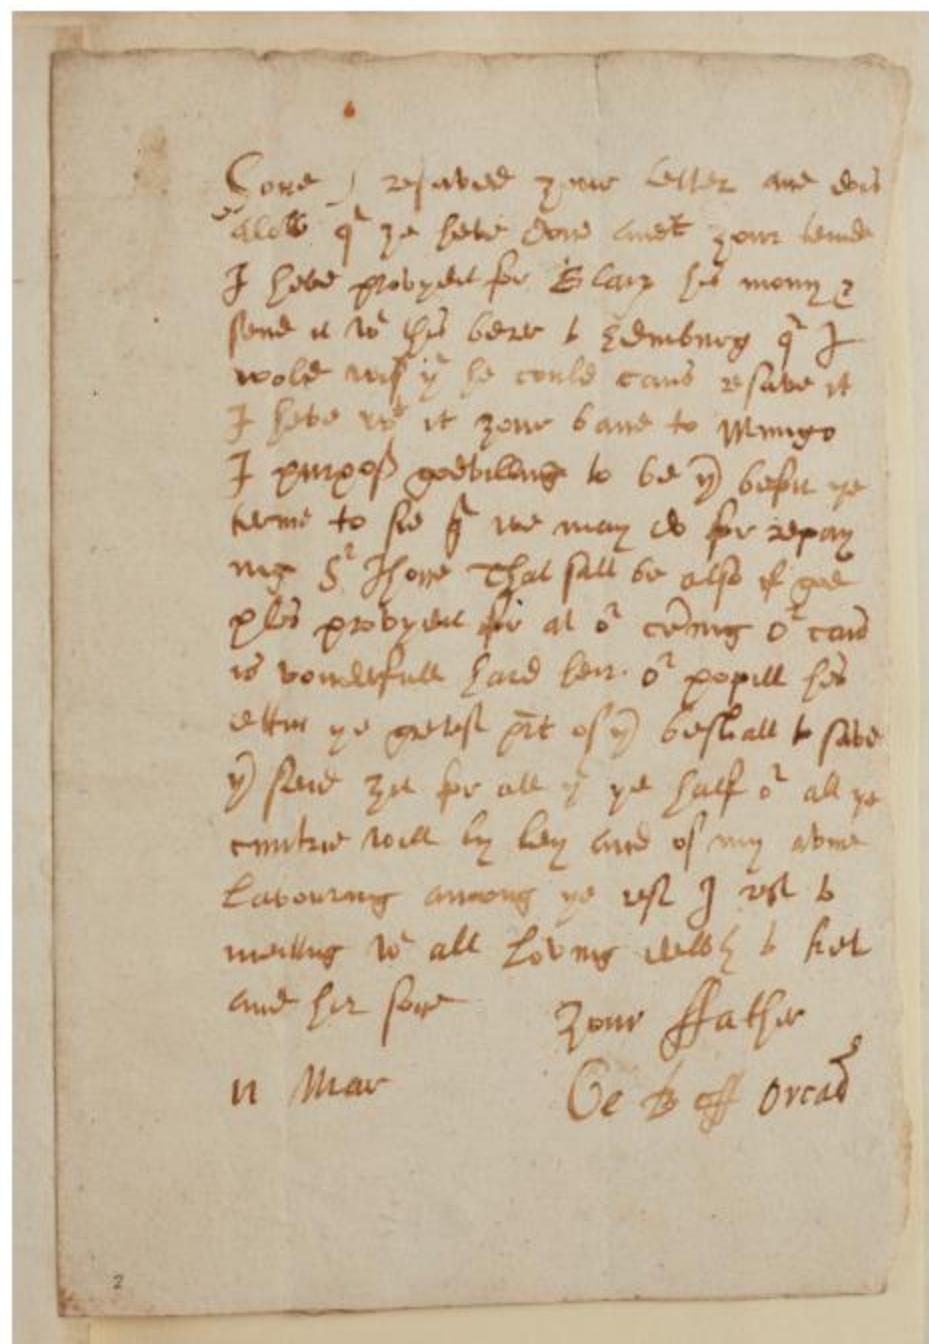 Sone I resaved zour letter and dois
alow qt ze heve done anet zour teind
I heve provydit for Blair his mony &
send it wt this berer to Edinburg qr I
wold wis yt he could caus resave it
I heve wt it zour band to Mungo
I purpoß godvilling to be yr befor ye
terme to sie qt we may do for repay
ing Sr Jhone That sall be also if god
ples provydit for at or cuming or caice
is vonderfull hard heir or popill hes
ettin ye gretest pt of yr bestiall to save
yr seid zit for all yt ye half of all ye
cuntrie will ly ley and of my awne
Labouring among ye rest I rest to
meitting wt all Loving to Ket
and hir sone Zour ffather
11 Mar Ge B off Orcad
2